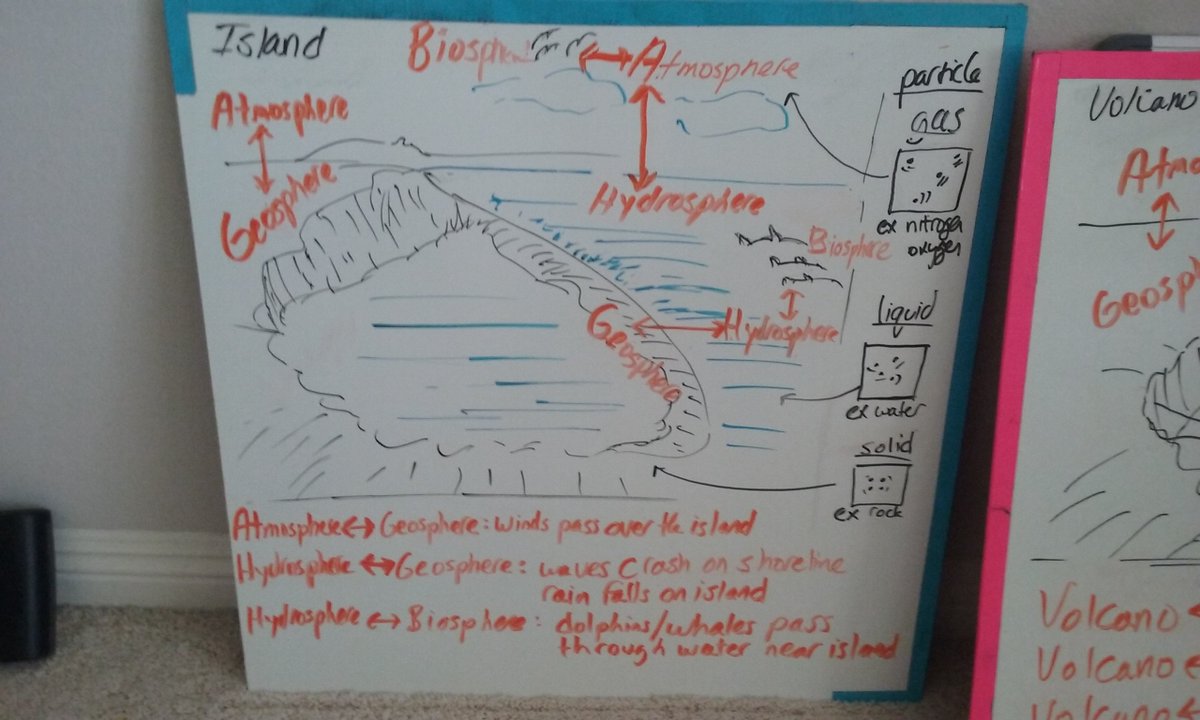 Island
Biosphere ↔ Atmosphere
Atmosphere
Geosphere
Hydrosphere
Biosphere
Geosphere ↔ Hydrosphere
particle
gas
ex nitrogen
oxygen
liquid
ex water
solid
ex rock
Atmosphere ↔ Geosphere: winds pass over the island
Hydrosphere ↔ Geosphere: waves crash on shoreline
rain falls on island
Hydrosphere ↔ Biosphere: dolphins/whales pass
through water near island
Volcano
Atmo
Geosph
Volcano
Volcano
Volcano